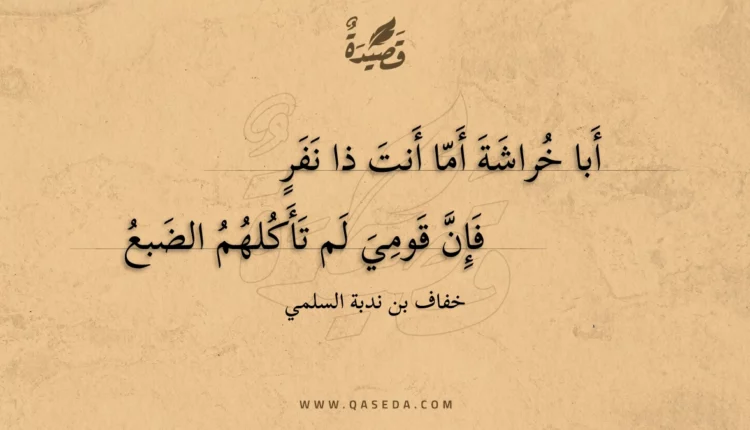 قَصِيدَةٌ
أَبا خُراشَةَ أَمّا أَنتَ ذا نَفَرٍ
فَإِنَّ قَومِيَ لَم تَأَكُلهُمُ الضَبعُ
خفاف بن ندبة السلمي
WWW.QASEDA.COM